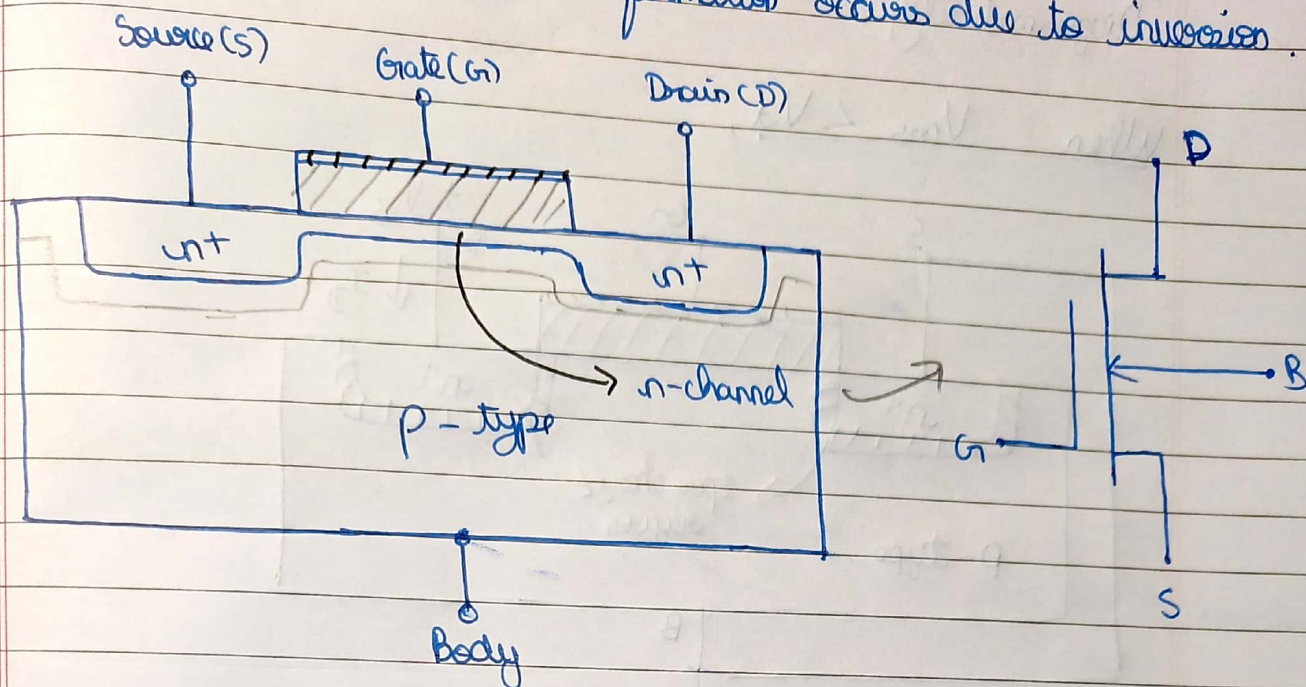 occurs due to inversion.
Source(S)
Gate(G)
Drain(D)
D
n+
n+
n-channel
B
p-type
G
S
Body